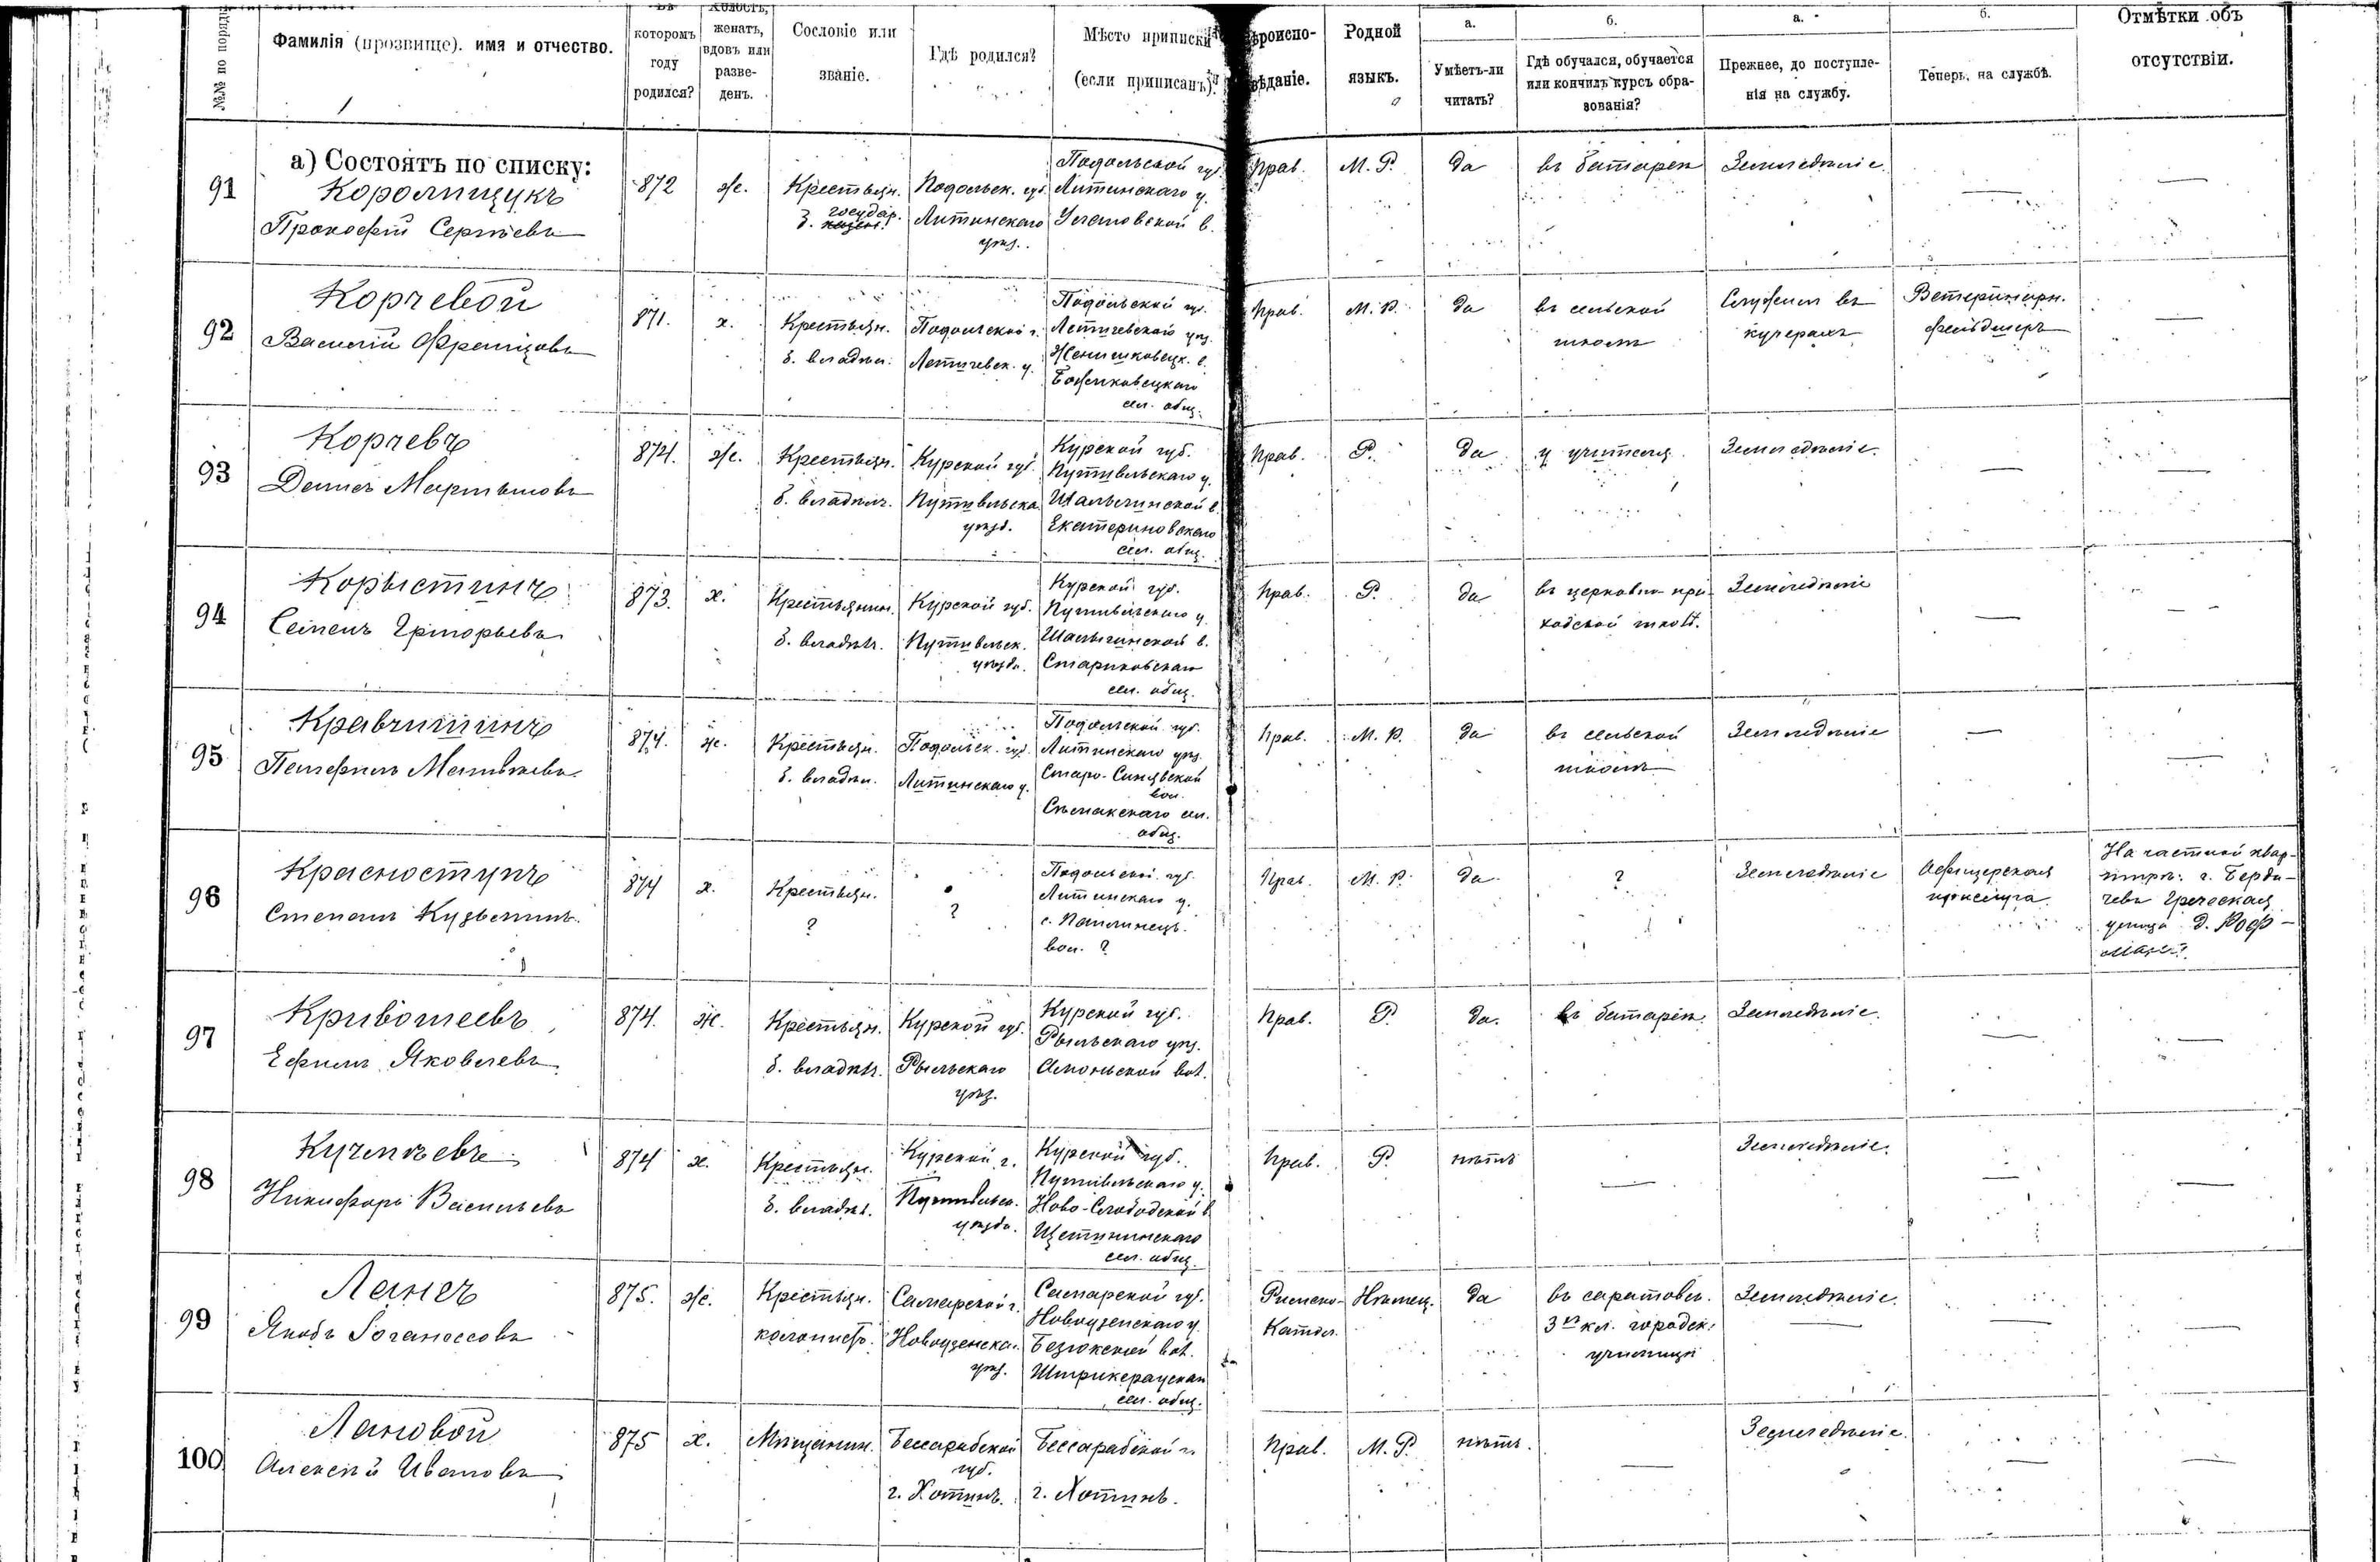 №№ по порядку
Фамилія (прозвище). имя и отчество.
которомъ году родился?
холостъ, женатъ, вдовъ или разведенъ.
Сословіе или званіе.
Гдѣ родился?
Мѣсто приписки (если приписанъ)?
Вѣроиспо-вѣданіе.
Родной языкъ.
а.
Умѣетъ-ли читать?
б.
Гдѣ обучался, обучается или кончилъ курсъ обра-зованія?
а.
Прежнее, до поступле-нія на службу.
б.
Теперь, на службѣ.
Отмѣтки объ отсутствіи.
а) Состоятъ по списку:
91
Королищукъ
Прокофій Сергѣевъ
872
ж.
Крестьян.
б. государ.
Подольск. губ.
Литинскаго
уѣз.
Подольской губ.
Литинскаго у.
в.
Прав.
М. Р.
да
въ батареи
Земледѣліе.
—
—
92
Корчевой
Василій Францовъ
871.
х.
Крестьян.
б. владѣл.
Подольской г.
Летичевск. у.
Подольской гу.
Летичевскаго уѣз.
Женишковецк. в.
Боженковецкаго
сел. общ.
Прав.
М. Р.
да
въ сельской
школѣ
Служилъ въ
кучерахъ
Ветеринарн.
фельдшеръ
—
93
Корчевъ
Денисъ Мартыновъ
874.
ж.
Крестьян.
б. владѣльч.
Курской губ.
Путивльска.
уѣзд.
Курской губ.
Путивльскаго у.
Шалыгинской в.
Екатериновскаго
сел. общ.
Прав.
Р.
да
у учителя
Земледѣліе.
—
—
94
Корыстинъ
Семенъ Григорьевъ
873.
х.
Крестьянин.
б. владѣл.
Курской губ.
Путивльск.
уѣзда.
Курской губ.
Путивльскаго у.
Шалыгинской в.
Стариковскаго
сел. общ.
Прав.
Р.
да
въ церковно-при-
ходской школѣ.
Земледѣліе
—
—
95
Кравчишинъ
Матвѣевъ
874.
ж.
Крестьян.
б. владѣл.
Подольск. губ.
Литинскаго у.
Подольской губ.
Литинскаго уѣз.
Старо-Синявской
вол.
сел.
общ.
Прав.
М. Р.
да
въ сельской
школѣ
Земледѣліе
—
—
96
Красноступъ
Степанъ Кузьминъ.
874
х.
Крестьян.
?
?
Подольской губ.
Литинскаго у.
с.
вол. ?
Прав.
М. Р.
да
?
Земледѣліе
Офицерская
прислуга.
На частной квар-
тирѣ: г. Берди-
чевъ Греческая
улица д.
97
Кривошеевъ
Ефимъ Яковлевъ
874.
ж.
Крестьян.
б. владѣл.
Курской губ.
Рыльскаго
уѣз.
Курской губ.
Рыльскаго уѣз.
Амоньской вол.
Прав.
Р.
да.
въ батареи.
Земледѣліе.
—
—
98
Никифоръ Васильевъ
874
х.
Крестьян.
б. владѣл.
Курской г.
Путивльск.
уѣзда.
Курской губ.
Путивльскаго у.
Ново-Слободской в.
Щетининскаго
сел. общ.
Прав.
Р.
нѣтъ
—
Земледѣліе.
—
—
99
Якобъ Іоганессовъ
875.
ж.
Крестьян.
колонистъ.
Самарской г.
Новоузенска.
уѣз.
Самарской губ.
Новоузенскаго у.
вол.
сел. общ.
Римско-
Катол.
Нѣмец.
да
въ саратовск.
3хъ кл. городск.
училищѣ
Земледѣліе.
—
—
100
Лановой
Алексѣй Ивановъ
875
х.
Мѣщанин.
Бессарабской
губ.
г. Хотинъ.
Бессарабской г.
г. Хотинъ.
Прав.
М. Р.
нѣтъ.
—
Земледѣліе.
—
—